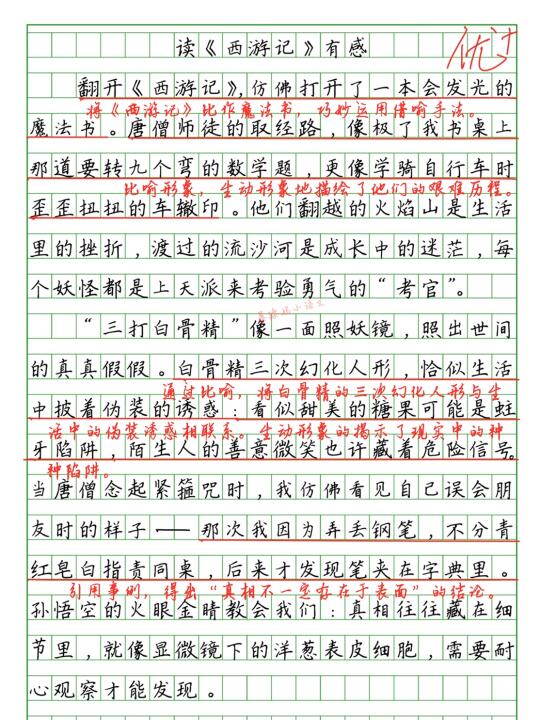 读《西游记》有感
优
翻开《西游记》,仿佛打开了一本会发光的
将《西游记》比作魔法书，巧妙运用借喻手法。
魔法书。唐僧师徒的取经路，像极了我书桌上
那道要转九个弯的数学题，更像学骑自行车时
比喻形象，生动形象地描绘了他们的艰难历程。
歪歪扭扭的车辙印。他们翻越的火焰山是生活
里的挫折，渡过的流沙河是成长中的迷茫，每
个妖怪都是上天派来考验勇气的“考官”。
“三打白骨精”像一面照妖镜，照出世间
的真真假假。白骨精三次幻化人形，恰似生活
通过比喻，将白骨精的三次幻化人形与生
中披着伪装的诱惑：看似甜美的糖果可能是蛀
活中的伪装诱惑相联系。生动形象的揭示了现实中的种
牙陷阱，陌生人的善意微笑也许藏着危险信号。
种陷阱。
当唐僧念起紧箍咒时，我仿佛看见自己误会朋
友时的样子——那次我因为弄丢钢笔，不分青
红皂白指责同桌，后来才发现笔夹在字典里。
引用事例，得出“真相不一定存在于表面”的结论。
孙悟空的火眼金睛教会我们：真相往往藏在细
节里，就像显微镜下的洋葱表皮细胞，需要耐
心观察才能发现。